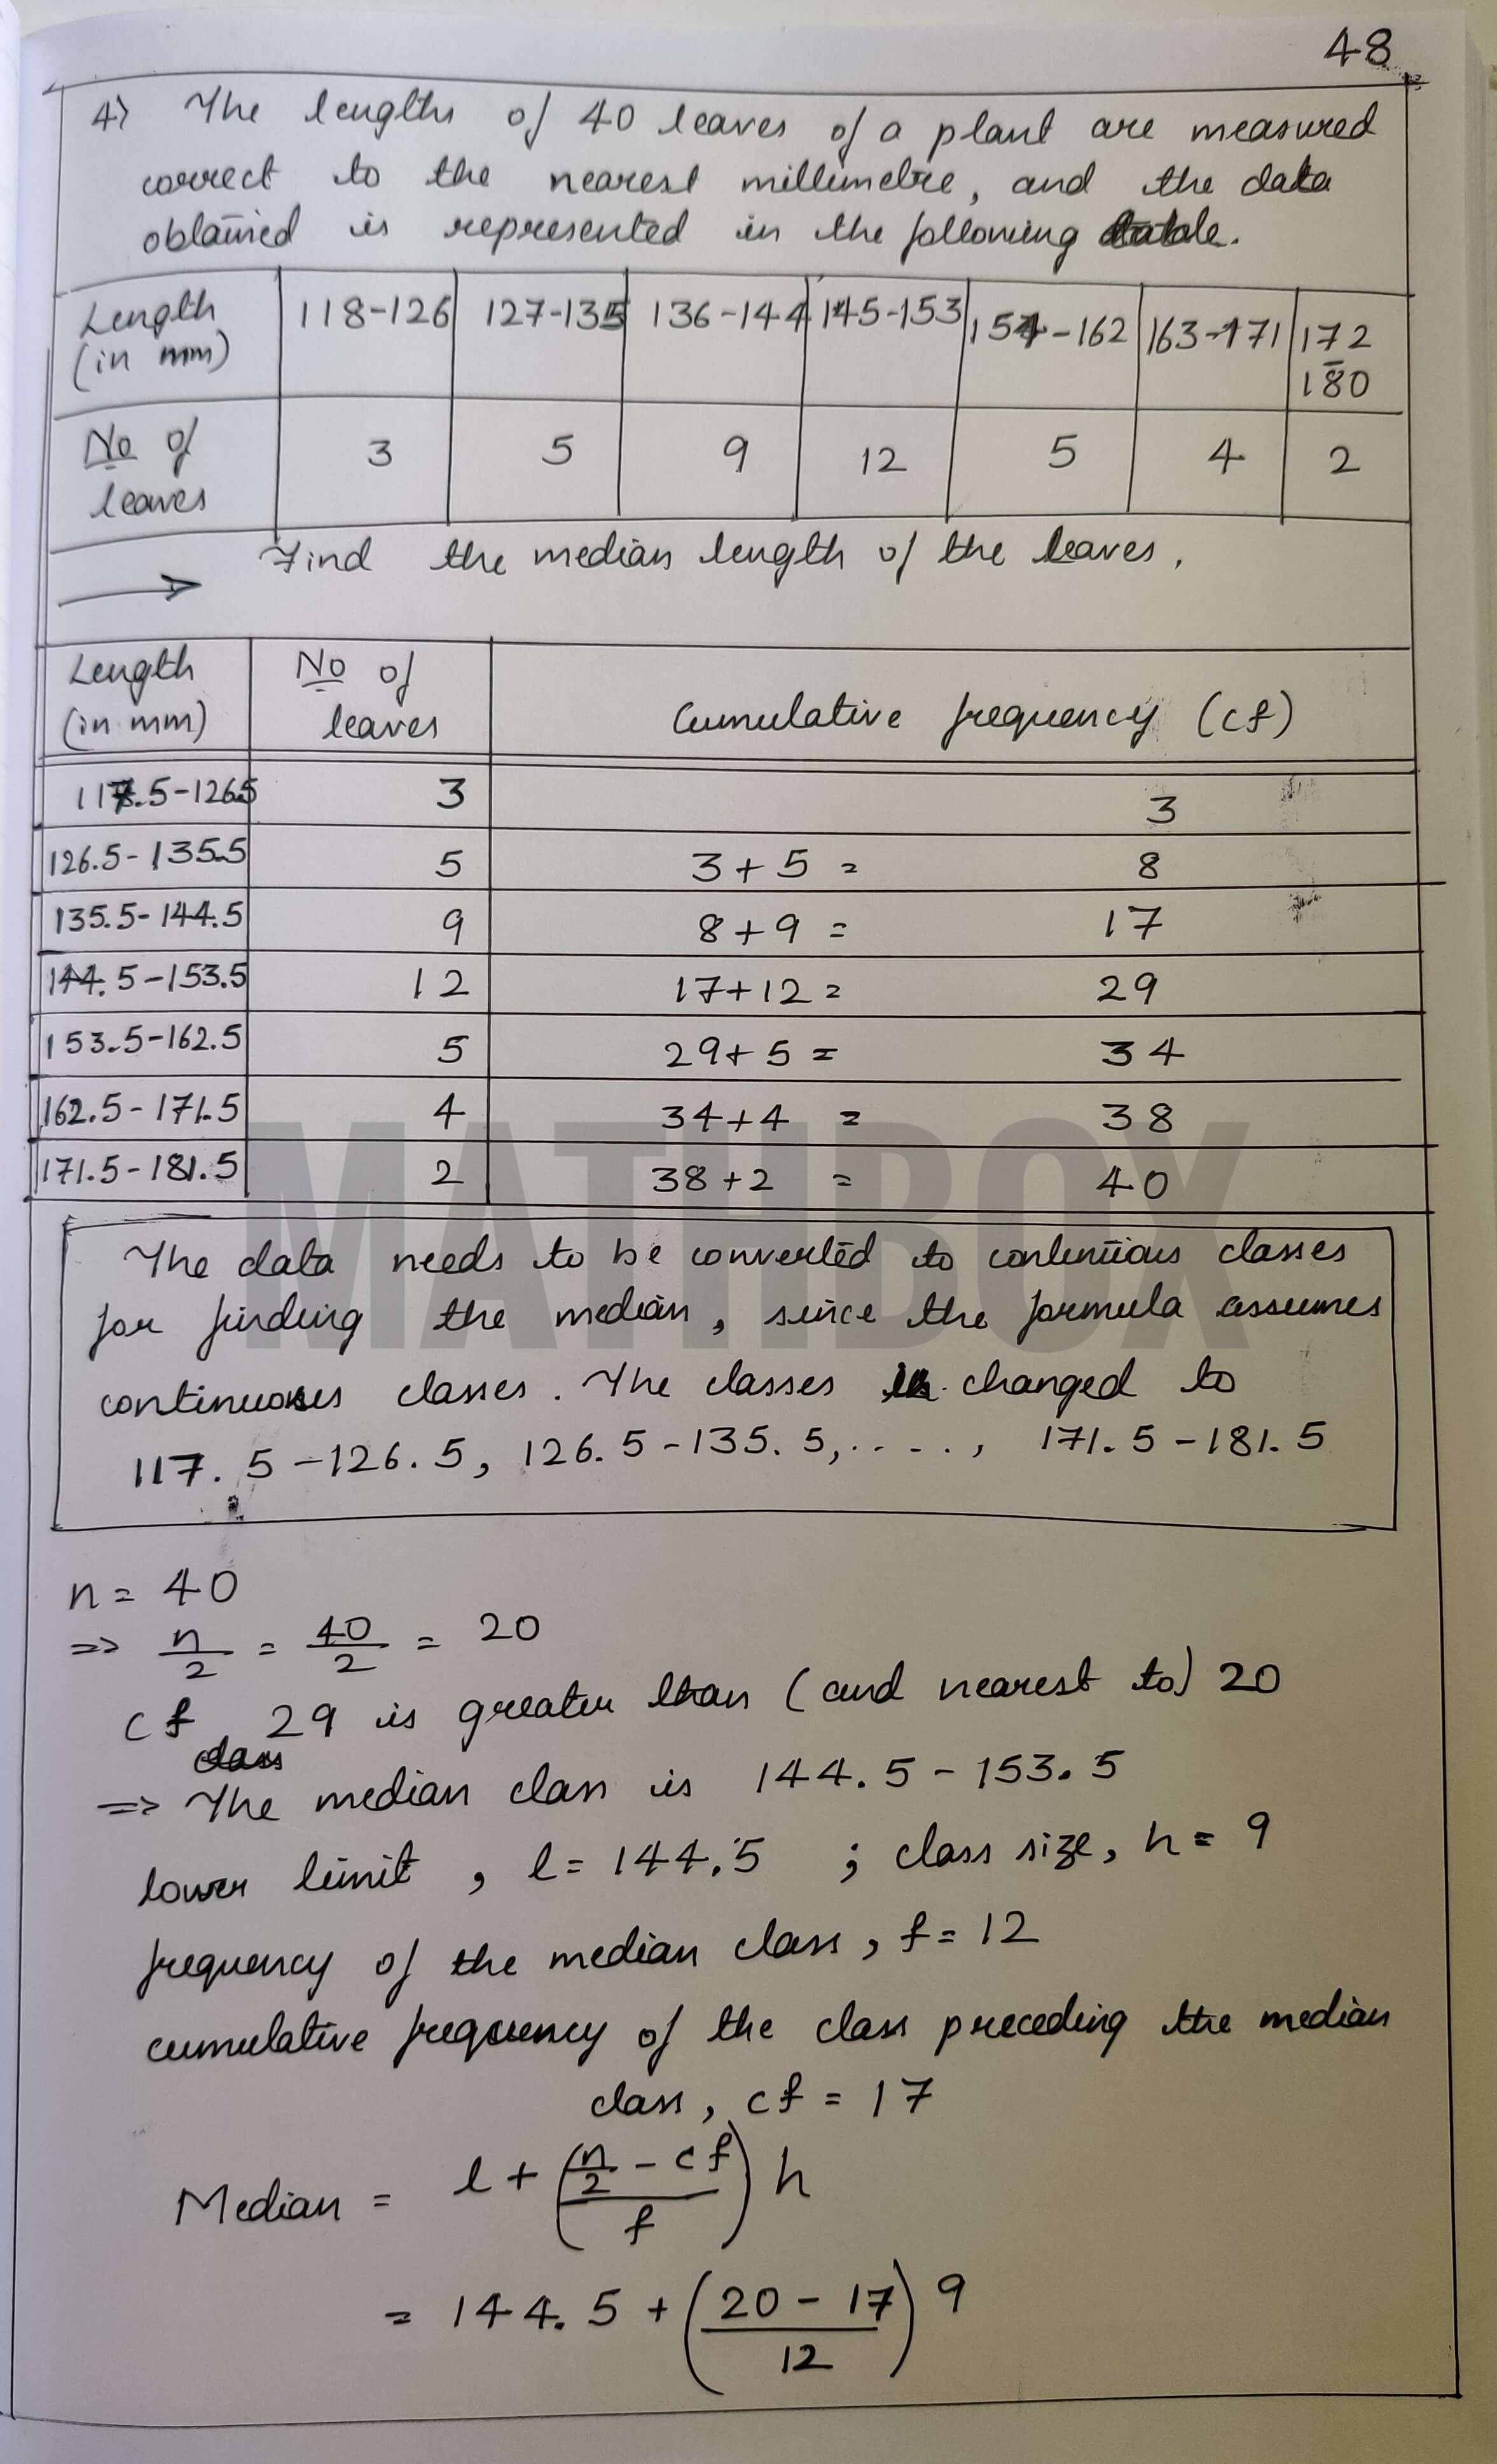 48
4) The lengths of 40 leaves of a plant are measured
correct to the nearest millimetre, and the data
obtained is represented in the following table.
Length (in mm) 118-126 127-135 136-144 145-153 154-162 163-171 172-180
No of leaves 3 5 9 12 5 4 2
Find the median length of the leaves.
Length (in mm) No of leaves Cumulative frequency (cf)
117.5-126.5 3 3
126.5-135.5 5 3+5= 8
135.5-144.5 9 8+9= 17
144.5-153.5 12 17+12= 29
153.5-162.5 5 29+5= 34
162.5-171.5 4 34+4 = 38
171.5-181.5 2 38+2 = 40
MATHBOX
The data needs to be converted to continuous classes
for finding the median, since the formula assumes
continuous classes. The classes is changed to
117.5-126.5, 126.5-135.5, ...., 171.5-181.5
n = 40
=> n/2 = 40/2 = 20
cf 29 is greater than (and nearest to) 20
class
=> The median class is 144.5-153.5
lower limit, l=144.5 ; class size, h= 9
frequency of the median class, f= 12
cumulative frequency of the class preceding the median
class, cf = 17
Median = l + ((n/2 - cf)/f) h
= 144.5 + ((20-17)/12) 9